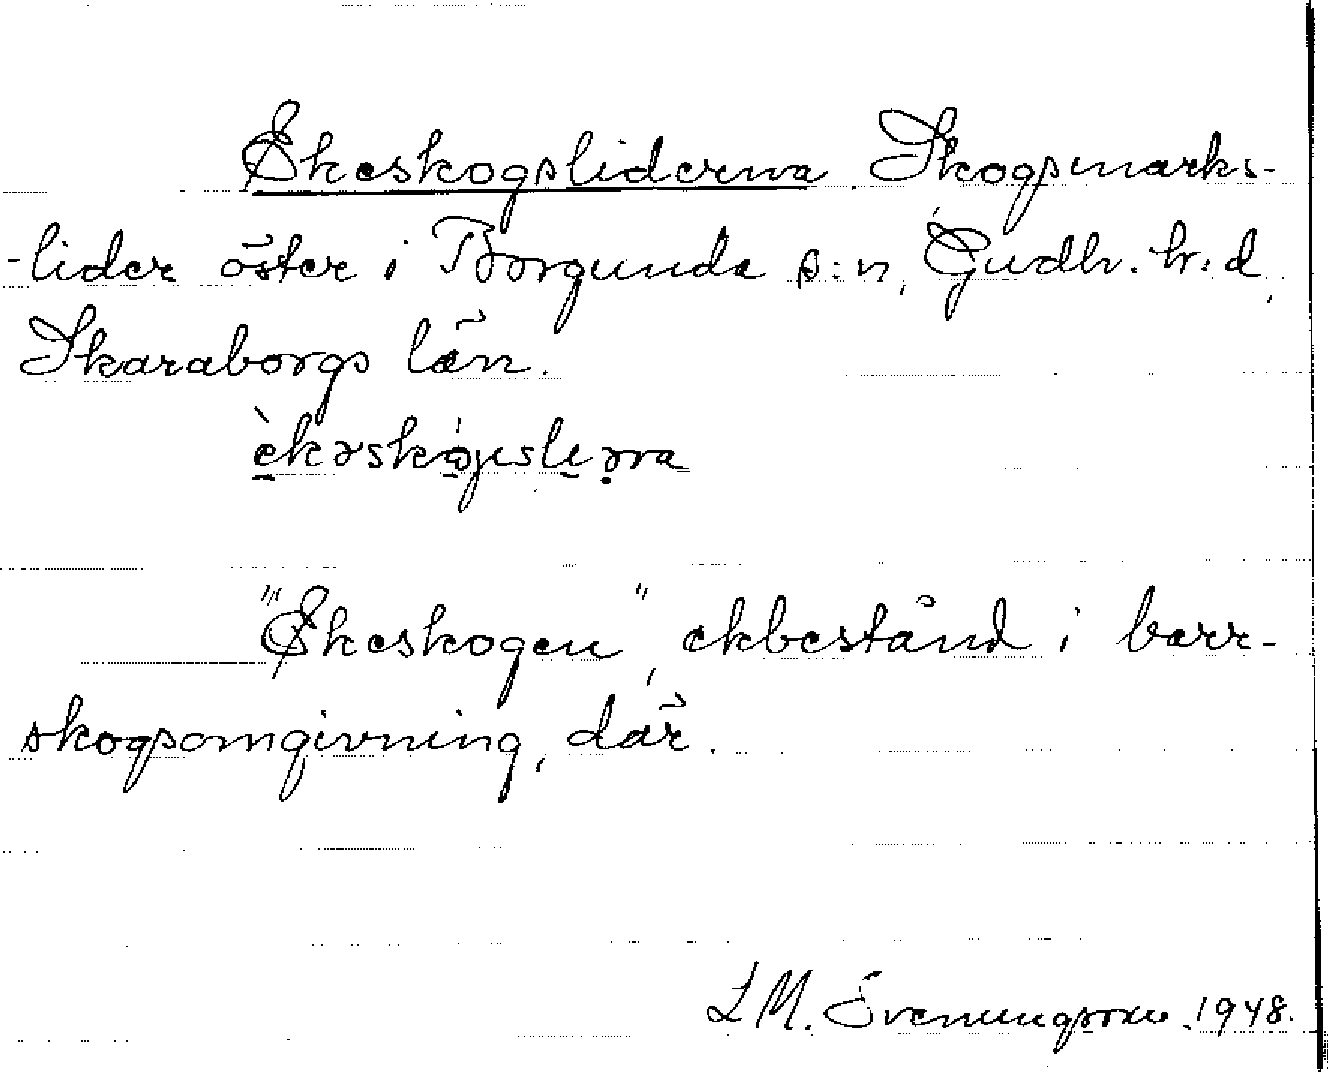 Ekeskogsliderna Skogsmarks-
-lider öster i Borgunda s:n, Gudh. h:d,
Skaraborgs län.
"Ekeskogen", ekbestånd i barr-
skogsomgivning, där.
L M. Svenungsson 1948.